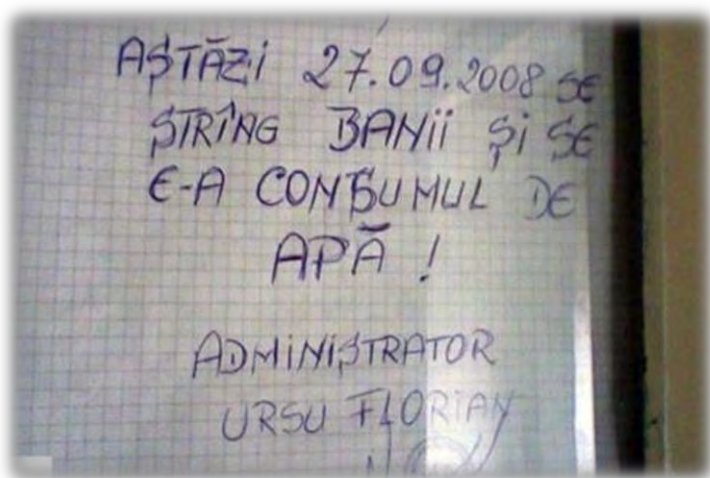 AȘTĂZI 27.09.2008 SE
ȘTRÎNG BANII ȘI SE
E-A CONȘUMUL DE
APĂ !
ADMINIȘTRATOR
URSU FLORIAN